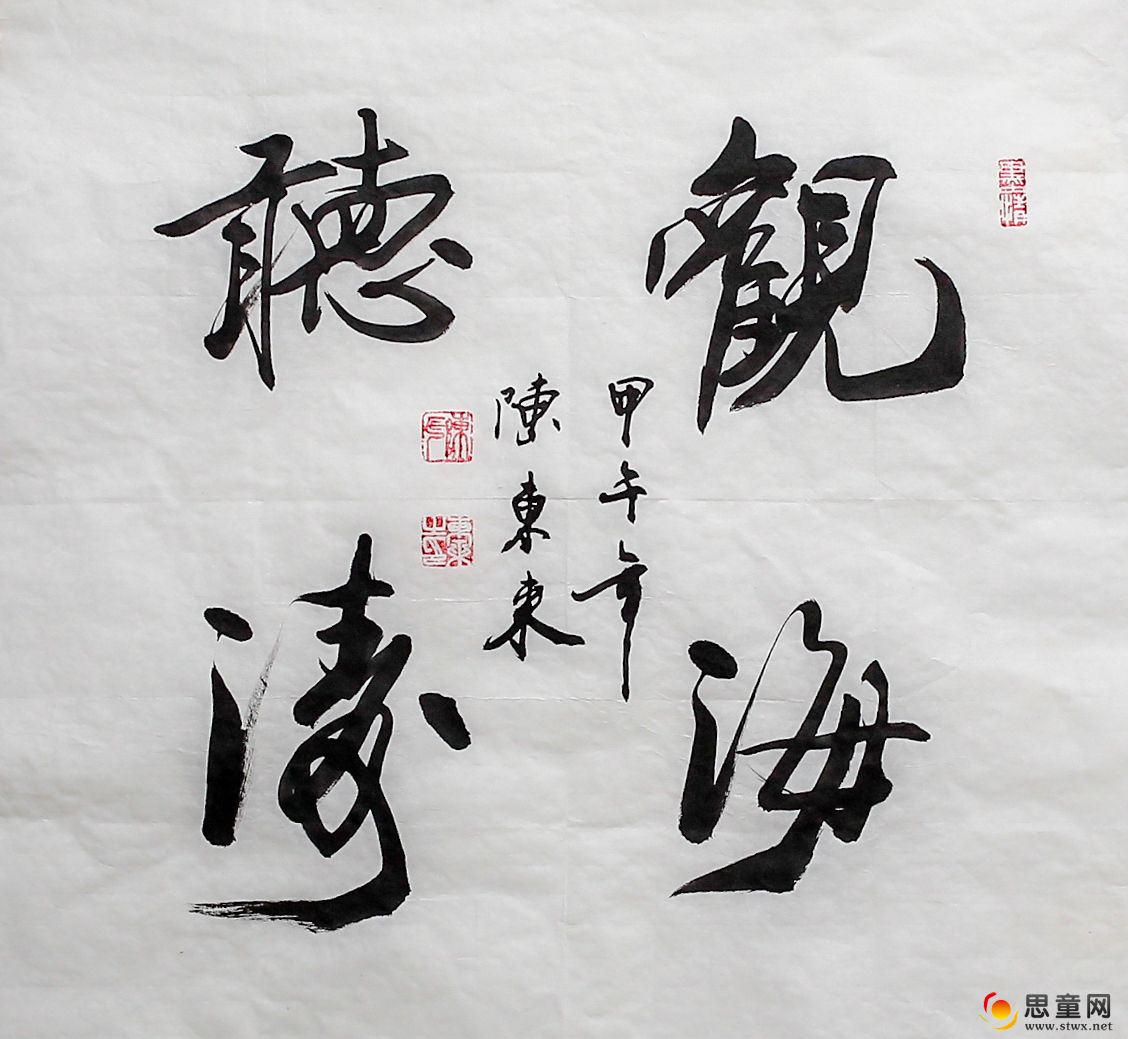 觀海
聽濤
甲午年
陳東東
思童网
www.stwx.net